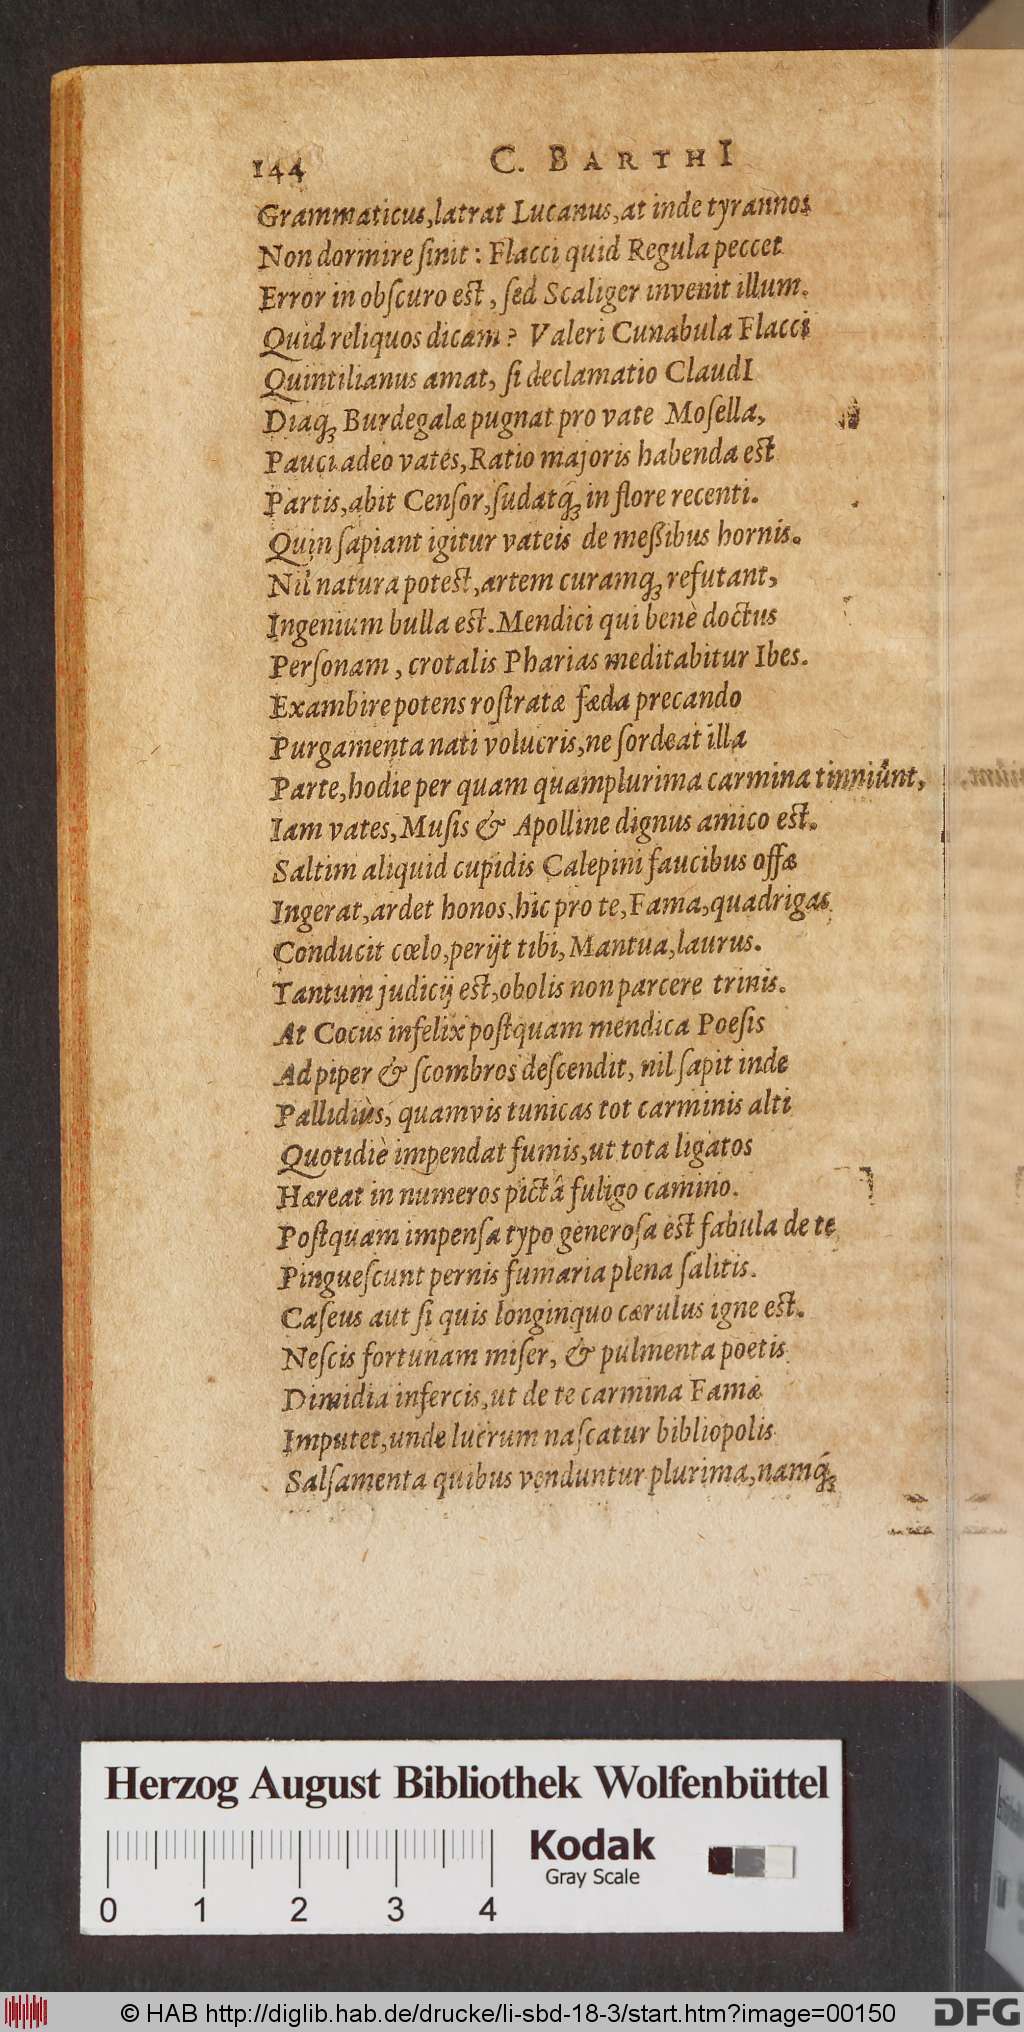 144 C. BARTHI
Grammaticus, latrat Lucanus, at inde tyrannos
Non dormire ſinit: Flacci quid Regula peccet
Error in obſcuro eſt, ſed Scaliger invenit illum.
Quid reliquos dicam? Valeri Cunabula Flacci
Quintilianus amat, ſi declamatio ClaudI
Diaq́; Burdegalæ pugnat pro vate Moſella,
Pauci adeo vates, Ratio majoris habenda eſt
Partis, abit Cenſor, ſudatq́; in flore recenti.
Quin ſapiant igitur vateis de meßibus hornis.
Nil natura poteſt, artem curamq; refutant,
Ingenium bulla eſt. Mendici qui benè doctus
Perſonam, crotalis Pharias meditabitur Ibes.
Exambire potens roſtratæ fæda precando
Purgamenta nati volucris, ne ſordeat illa
Parte, hodie per quam quamplurima carmina tinniunt,
Iam vates, Muſis & Apolline dignus amico eſt.
Saltim aliquid cupidis Calepini faucibus offæ
Ingerat, ardet honos, hic pro te, Fama, quadrigas
Conducit cœlo, perijt tibi, Mantua, laurus.
Tantum judicij eſt, obolis non parcere trinis.
At Cocus infelix poſtquam mendica Poeſis
Ad piper & ſcombros deſcendit, nil ſapit inde
Pallidiùs, quamvis tunicas tot carminis alti
Quotidiè impendat fumis, ut tota ligatos
Hæreat in numeros pictâ fuligo camino.
Poſtquam impenſa typo generoſa eſt fabula de te
Pingueſcunt pernis fumaria plena ſalitis.
Caſeus aut ſi quis longinquo cærulus igne eſt.
Neſcis fortunam miſer, & pulmenta poetis
Dimidia infercis, ut de te carmina Famæ
Imputet, unde lucrum naſcatur bibliopolis
Salſamenta quibus venduntur plurima, namq́;
Herzog August Bibliothek Wolfenbüttel
Kodak
Gray Scale
0 1 2 3 4
© HAB http://diglib.hab.de/drucke/li-sbd-18-3/start.htm?image=00150
DFG